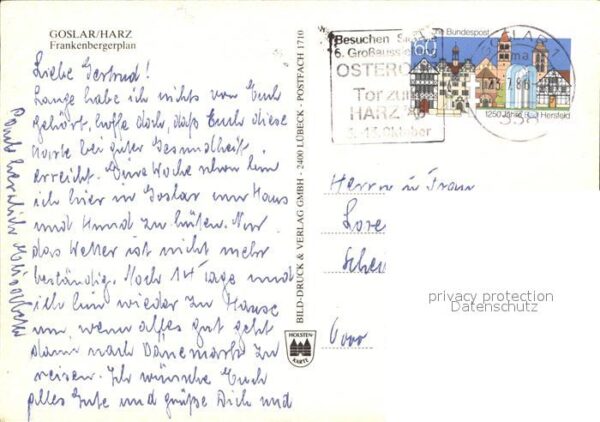 GOSLAR/HARZ
Frankenbergerplan
Liebe Gertrud!
Lange habe ich nichts von Euch
gehört, hoffe doch, daß Euch diese
Karte bei guter Gesundheit
erreicht. Eine Woche schon bin
ich hier in Goslar um Haus
und Hund zu hüten. Nur
das Wetter ist nicht mehr
beständig. Noch 14 Tage und
ich bin wieder zu Hause
um, wenn alles gut geht
dann nach Dänemark zu
reisen. Ich wünsche Euch
alles Gute und grüße Dich und
BILD-DRUCK & VERLAG GMBH - 2400 LÜBECK - POSTFACH 1710
HOLSTEN-
KARTE
Besuchen Sie
6. Großaus
OSTERO
Tor zum
HARZ
Oktober
60
Bundespost
GOSLAR 1
1250 Jahre Bad Hersfeld
Herrn u Frau
privacy protection
Datenschutz